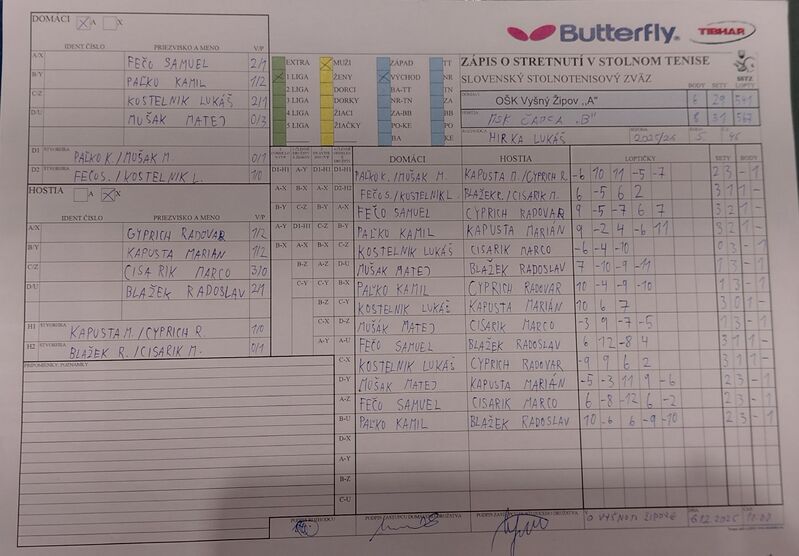 DOMÁCI A X
IDENT ČÍSLO PRIEZVISKO A MENO V/P
A/X FEČO SAMUEL 2/1
B/Y PAĽKO KAMIL 1/2
C/Z KOSTELNIK LUKÁŠ 2/1
D/U MUŠAK MATEJ 0/3
D1 ŠTVORHRA PAĽKO K./MUŠAK M. 0/1
D2 ŠTVORHRA FEČO S./KOSTELNIK L. 1/0
HOSTIA A X
IDENT ČÍSLO PRIEZVISKO A MENO V/P
A/X CYPRICH RADOVAR 1/2
B/Y KAPUSTA MARIÁN 1/2
C/Z CISARIK MARCO 3/0
D/U BLAŽEK RADOSLAV 2/1
H1 ŠTVORHRA KAPUSTA M./CYPRICH R. 1/0
H2 ŠTVORHRA BLAŽEK R./CISARIK M. 0/1
PRIPOMIENKY, POZNÁMKY
Butterfly
TIBHAR
EXTRA MUŽI ZÁPAD TT
1.LIGA ŽENY VÝCHOD NR
2.LIGA DORCI BA-TT TN
3.LIGA DORKY NR-TN ZA
4.LIGA ŽIACI ZA-BB BB
5.LIGA ŽIAČKY PO-KE PO
BA KE
ZÁPIS O STRETNUTÍ V STOLNOM TENISE
SLOVENSKÝ STOLNOTENISOVÝ ZVÄZ
SSTZ
BODY SETY LOPTY
DOMÁCI OŠK Vyšný Žipov „A" 6 29 541
HOSTIA MSK ČAPČA „B" 8 31 567
ROZHODCA HIRKA LUKÁŠ SEZÓNA 2025/26 5.
DOMÁCI HOSTIA LOPTIČKY SETY BODY
D1-H1 PAĽKO K./MUŠAK M. KAPUSTA M./CYPRICH R. -6 10 11 -5 -7 2 3 - 1
FEČO S./KOSTELNIK L. BLAŽEK R./CISARIK M. 6 -5 6 2 3 1 1 -
A-X FEČO SAMUEL CYPRICH RADOVAR 9 -5 -7 6 7 3 2 1 -
PAĽKO KAMIL KAPUSTA MARIÁN 9 -2 4 -6 11 3 2 1 -
KOSTELNIK LUKÁŠ CISARIK MARCO -6 -4 -10 0 3 - 1
D-U MUŠAK MATEJ BLAŽEK RADOSLAV 7 -10 -9 -11 1 3 - 1
B-X PAĽKO KAMIL CYPRICH RADOVAR 10 -4 -9 -10 1 3 - 1
C-Y KOSTELNIK LUKÁŠ KAPUSTA MARIÁN 10 6 7 3 0 1 -
D-Z MUŠAK MATEJ CISARIK MARCO -3 9 -7 -5 1 3 - 1
A-U FEČO SAMUEL BLAŽEK RADOSLAV 6 12 -8 4 3 1 1 -
C-X KOSTELNIK LUKÁŠ CYPRICH RADOVAR -9 9 6 2 3 1 1 -
D-Y MUŠAK MATEJ KAPUSTA MARIÁN -5 -3 11 9 -6 2 3 - 1
A-Z FEČO SAMUEL CISARIK MARCO 6 -8 -12 6 -2 2 3 - 1
B-U PAĽKO KAMIL BLAŽEK RADOSLAV 10 -6 6 -9 -10 2 3 - 1
D-X
A-Y
B-Z
C-U
PODPIS ROZHODCU PODPIS ZÁSTUPCU DOMÁCEHO DRUŽSTVA PODPIS ZÁSTUPCU HOSŤUJÚCEHO DRUŽSTVA V DŇA ČAS
6.12.2025